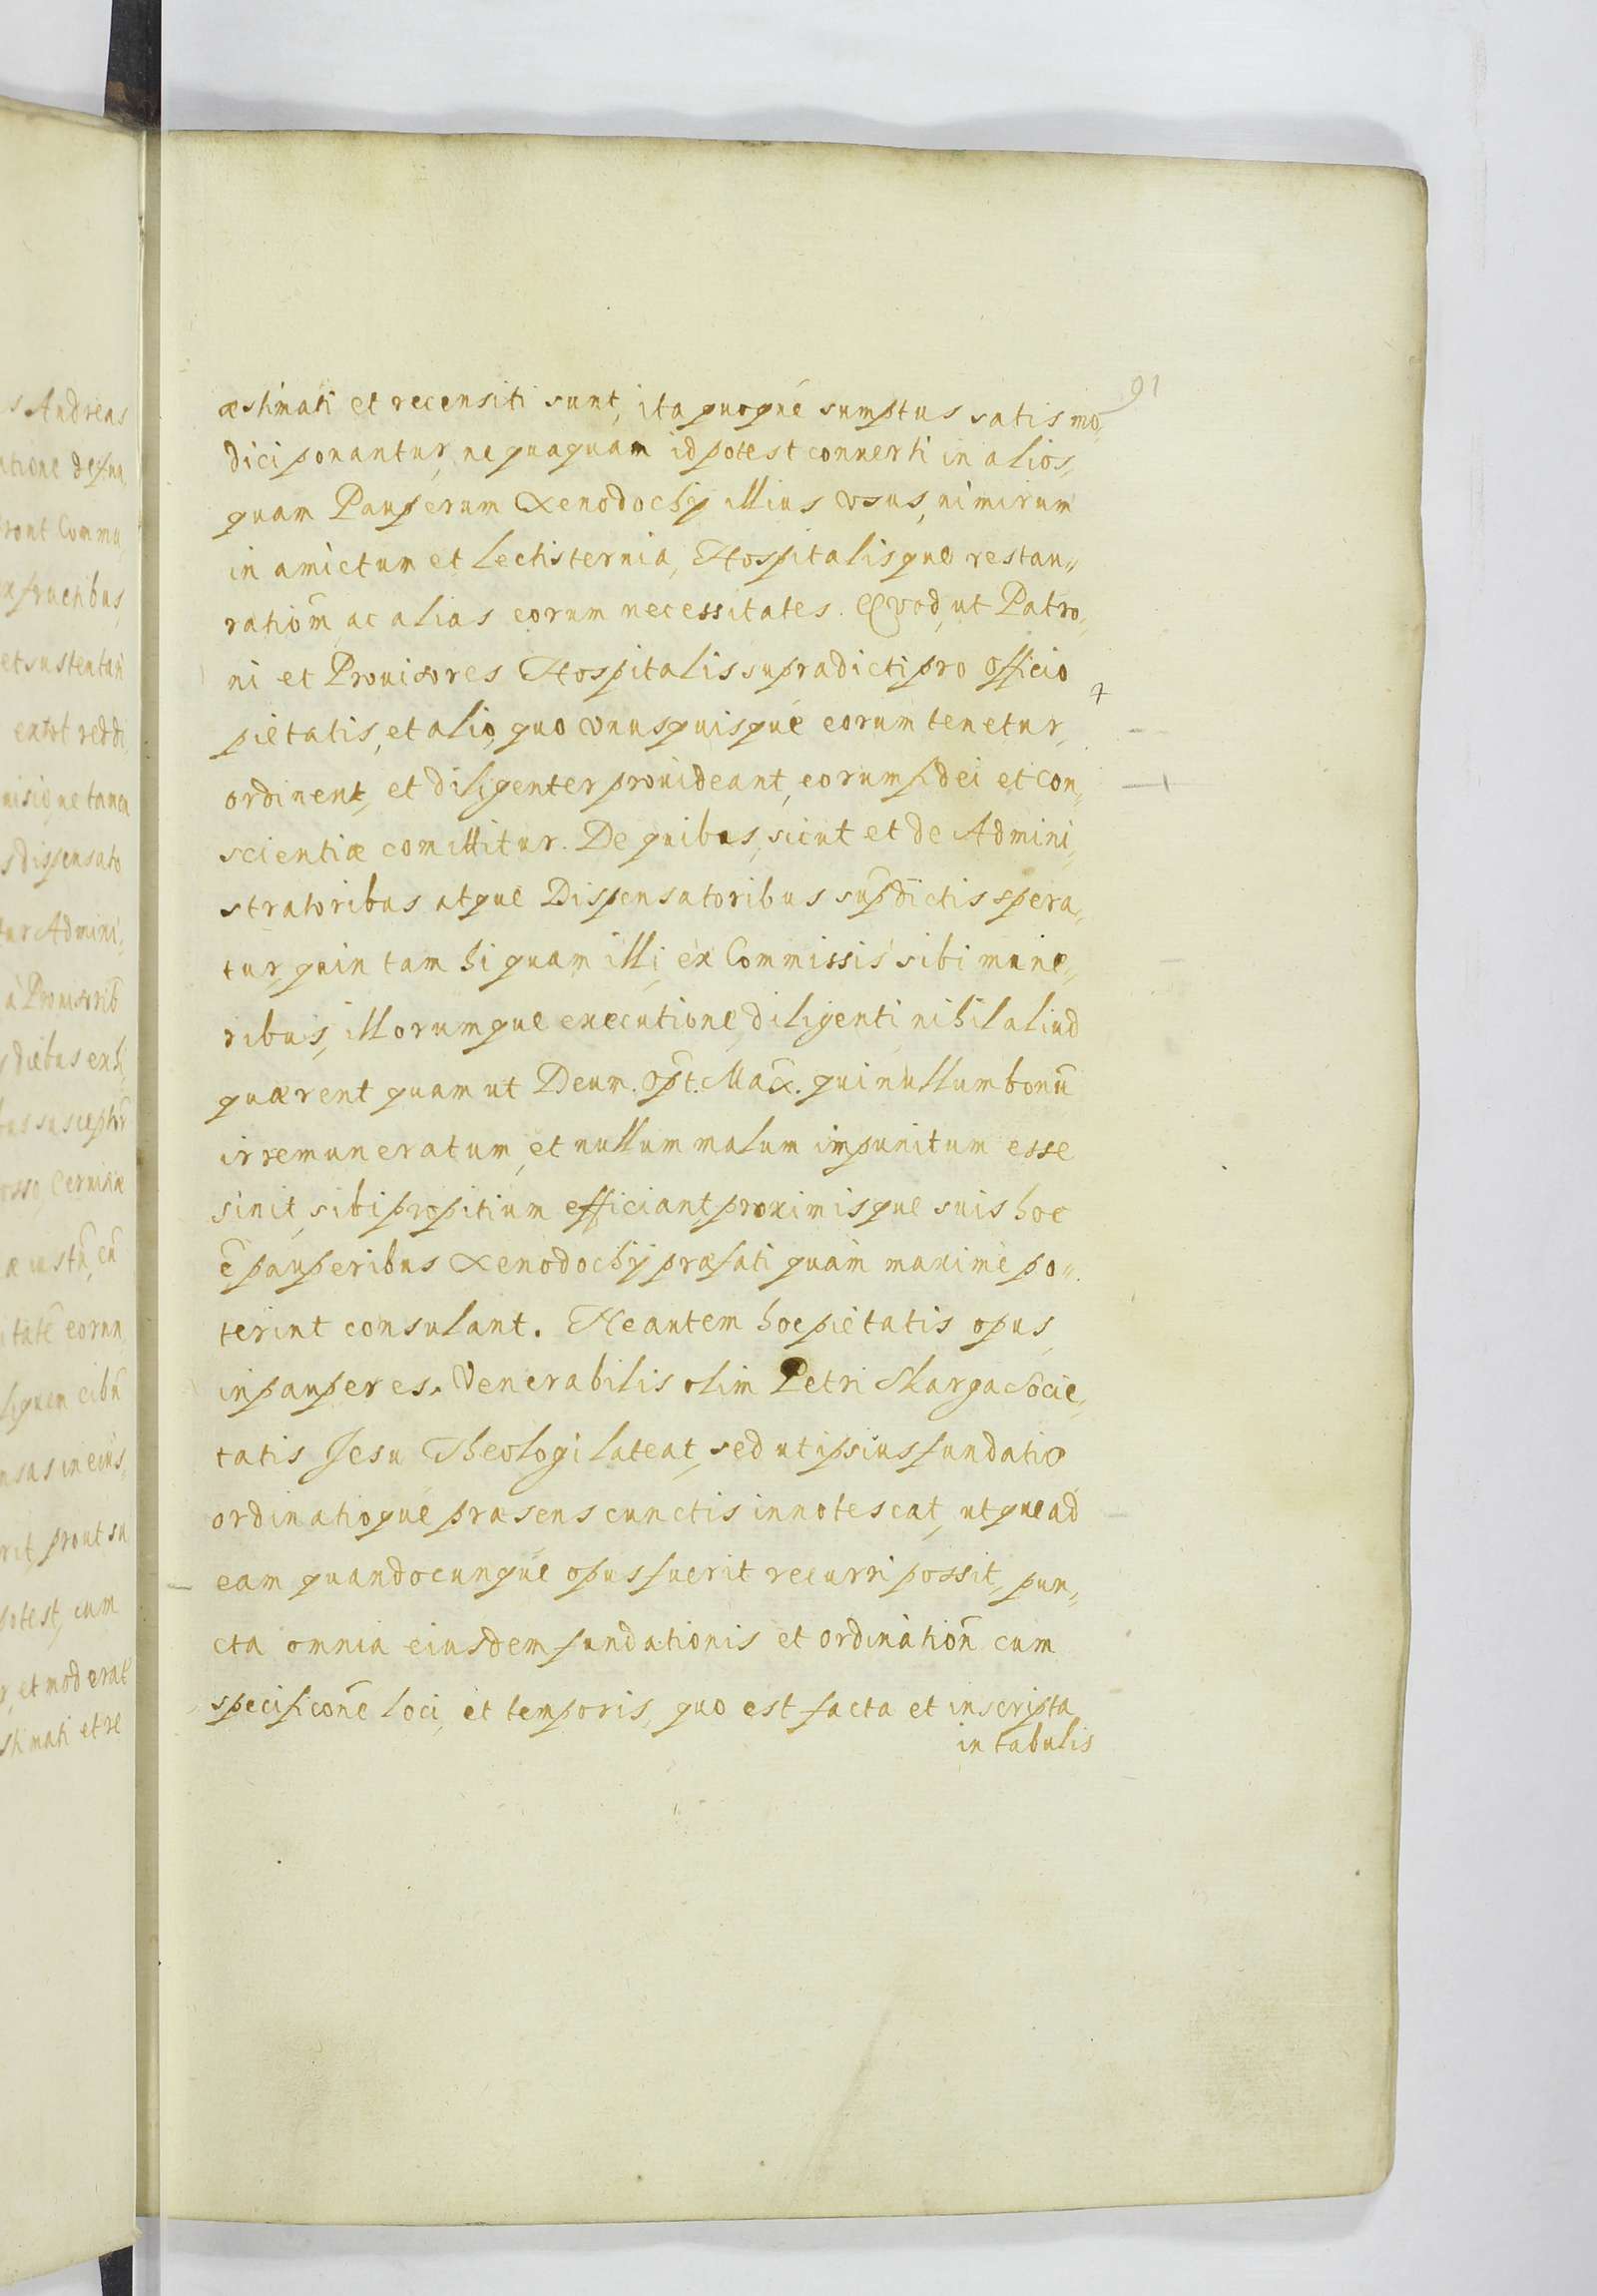 91
æstimati et recensiti sunt, ita quoque sumptus satis mo„
dici ponantur, nequaquam id potest conuerti in alios,
quam Pauperum Xenodochij illius vsus, nimirum
in amictum et lectisternia, Hospitalisque restau„
rationem ac alias eorum necessitates. Quod, ut Patro„
ni et Prouisores Hospitalis supradicti pro officio
pietatis, et alio, quo vnusquisque eorum tenetur,
ordinent, et diligenter prouideant, eorum fidei et con„
scientiæ comittitur. De quibus, sicut et de Admini„
stratoribus atque Dispensatoribus supdictis spera„
tur, quin tam hi quam illi, ex Commissis sibi mune„
ribus, illorumque executione diligenti nihil aliud
quærent quam ut Deum. Opt. Max. qui nullum bonū
irremuneratum, et nullum malum impunitum esse
sinit, sibi propitium efficiant, proximisque suis hoc
ē pauperibus Xenodochij præfati quam maxime po„
terint consulant. Ne autem hoc pietatis opus,
in pauperes. Venerabilis olim Petri Skarga Socie„
tatis Jesu Theologi lateat, sed ut ipsius fundatio
ordinatioque præsens cunctis innotescat, utque ad
eam quandocunque opus fuerit recurri possit, pun„
cta omnia eiusdem fundationis et ordination̄ cum
specificōne loci, et temporis, quo est facta et inscripta
in tabulis